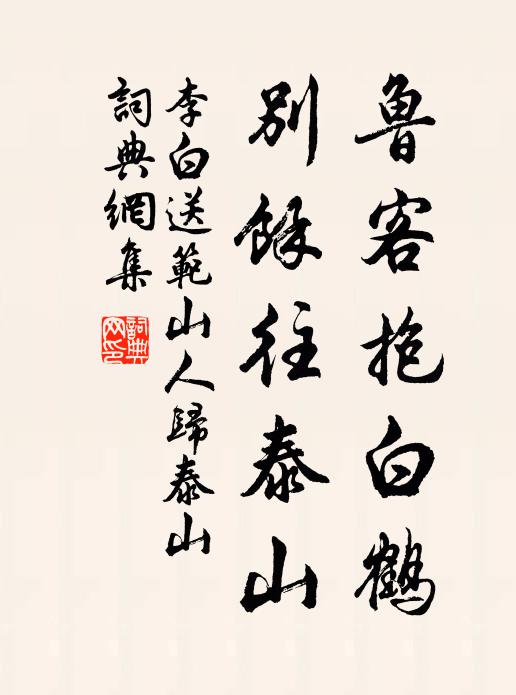 魯客抱白鶴
別餘往泰山
李白送範山人歸泰山
詞典網集
詞典网印